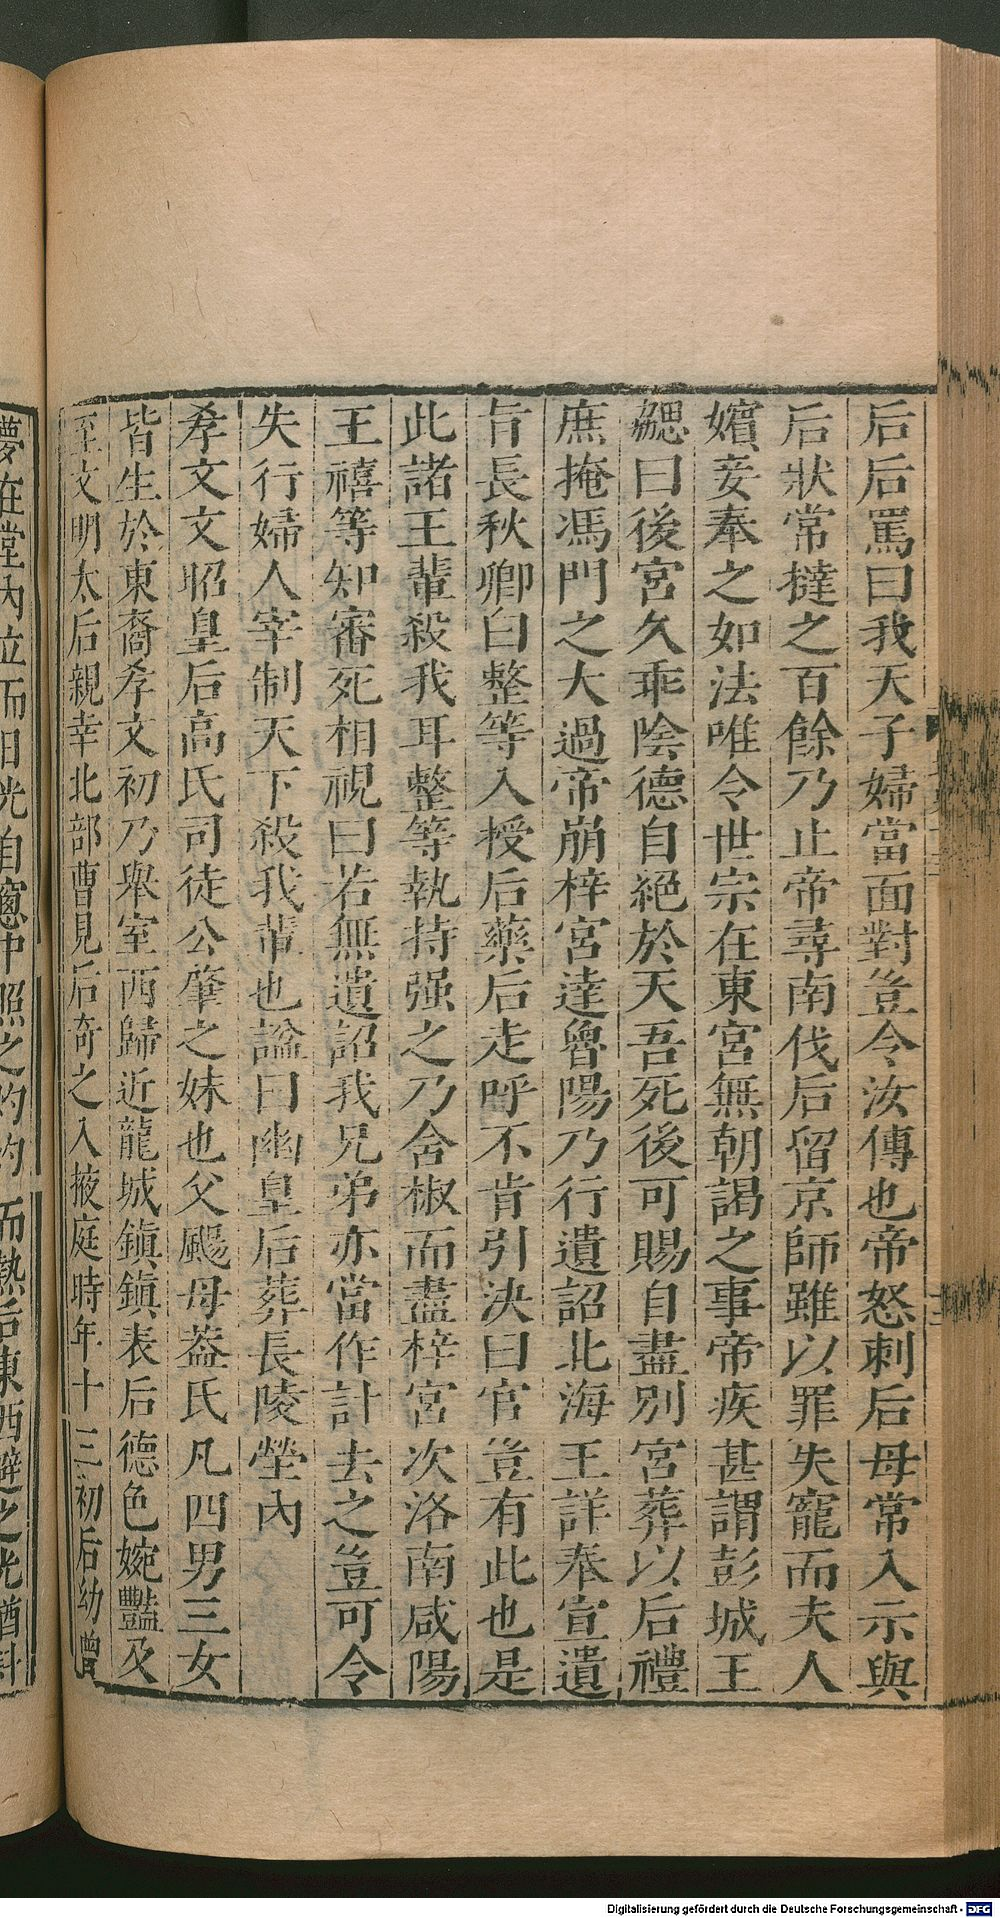 后后罵曰我天子婦當面對豈令汝傳也帝怒刺后母常入示與
后狀常撻之百餘乃止帝尋南伐后留京師雖以罪失寵而夫人
嬪妾奉之如法唯令世宗在東宮無朝謁之事帝疾甚謂彭城王
勰曰後宮久乖陰德自絕於天吾死後可賜自盡別宮葬以后禮
庶掩馮門之大過帝崩梓宮達魯陽乃行遺詔北海王詳奉宣遺
旨長秋卿白整等入授后藥后走呼不肯引決曰官豈有此也是
此諸王輩殺我耳整等執持强之乃含椒而盡梓宮次洛南咸陽
王禧等知審死相視曰若無遺詔我兄弟亦當作計去之豈可令
失行婦人宰制天下殺我輩也諡曰幽皇后葬長陵塋內
孝文文昭皇后高氏司徒公肇之妹也父颺母葢氏凡四男三女
皆生於東裔孝文初乃舉室西歸近龍城鎭鎭表后德色婉豔及
至文明太后親幸北部曹見后奇之入掖庭時年十三初后幼曾
夢在堂內立而日光自窻中照之灼灼而熱后東西避之光猶斜
Digitalisierung gefördert durch die Deutsche Forschungsgemeinschaft - DFG